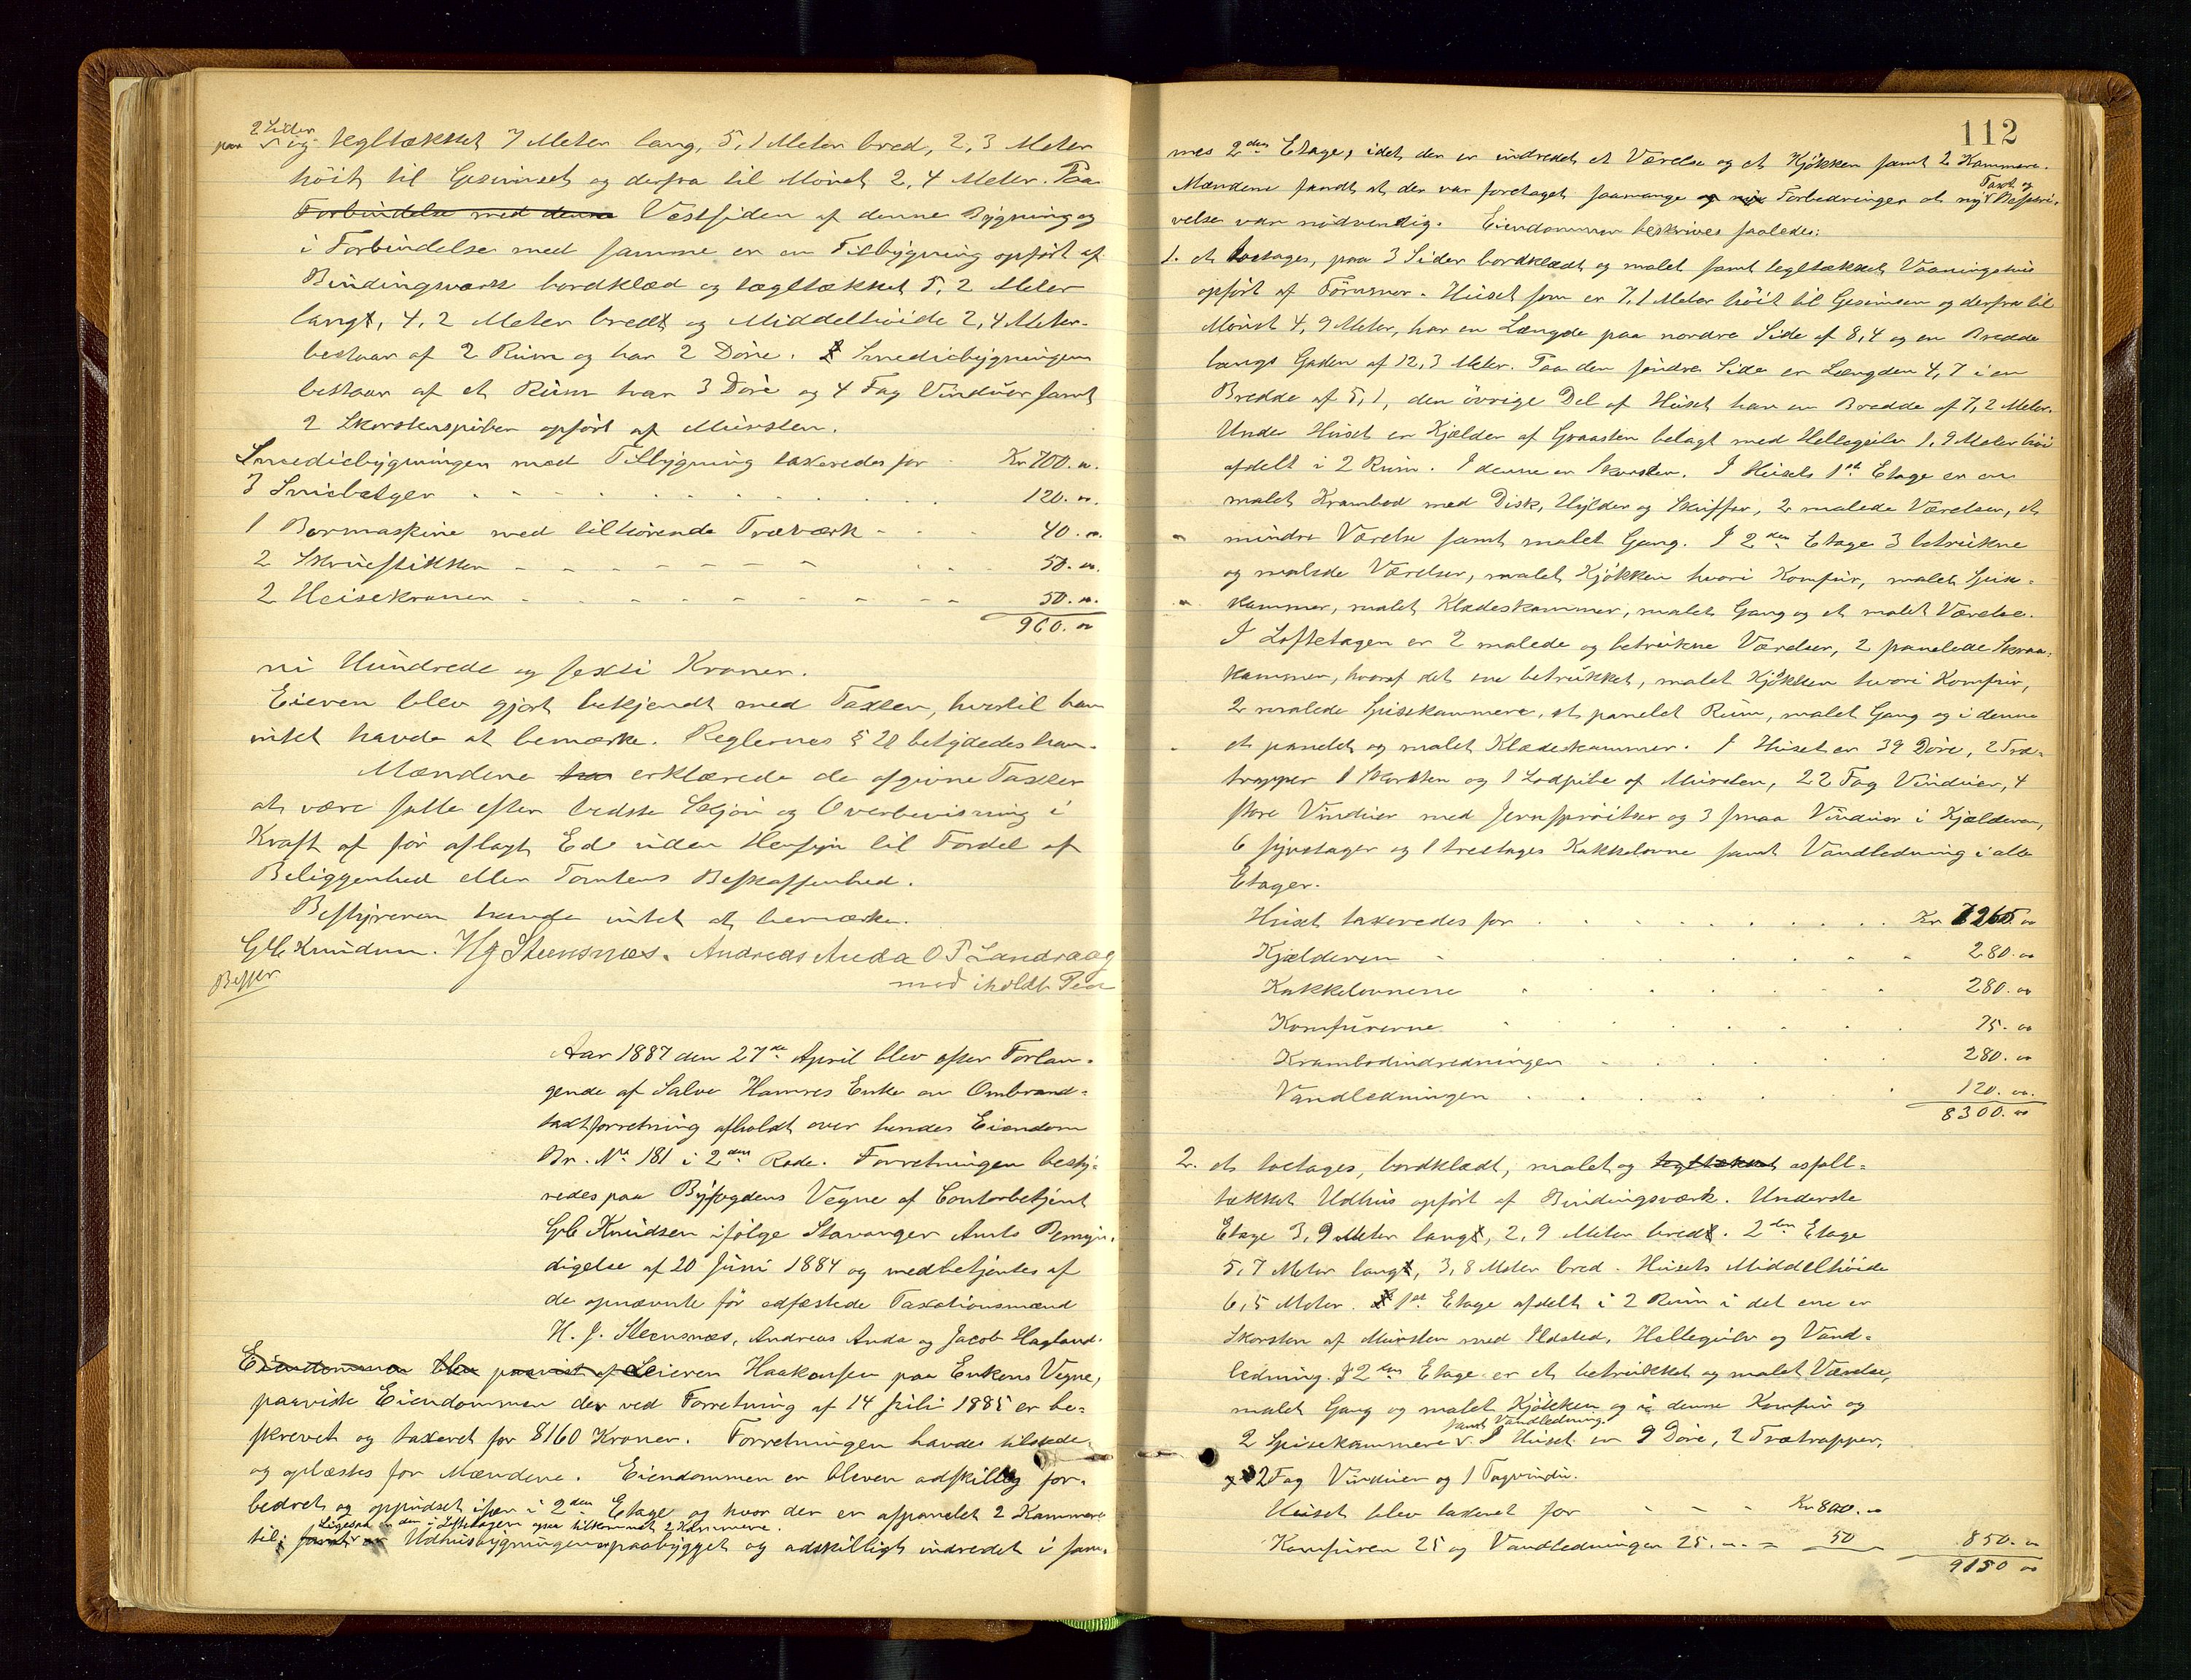 2 Sider
paa og tegltækket 7 Meter lang, 5,1 Meter bred, 2,3 Meter
höit til Gesimset og derfra til Mönet 2,4 Meter. Paa
Forbindelse med denne Vestsiden af denne Bygning og
i Forbindelse med samme er en Tilbygning opfört af
Bindingsværk bordklæd og tægltækket 5,2 Meter
langt, 4,2 Meter bredt og Middelhöide 2,4 Meter.
bestaar af 2 Rum og har 2 Döre. Smediebygningen
bestaar af et Rum har 3 Döre og 4 Fag Vinduer samt
2 Skorstenspiber opfört af Mursten.
Smediebygningen med Tilbygning taxeredes for Kr 700. "
3 Smiebælger 120. "
1 Bormaskine med tilhörende Træværk 40. "
2 Skruestikker 50. "
2 Heisekraner 50. "
960. "
ni Hundrede og sexti Kroner.
Eieren blev gjort bekjendt med Taxten, hvortil han
intet havde at bemærke. Reglernes § 20 betydedes ham.
Mændene erklærede de afgivne Taxter
at være satte efter bedste Skjön og Overbevisning i
Kraft af för aflagt Ed uden Hensyn til Fordel af
Beliggenhed eller Tomtens Beskaffenhed.
Bestyreren havde intet at bemærke.
G C Knudsen. H J Steensnæs. Andreas Anda O T Landraag
med iholdt Pen
Aar 1887 den 27de April blev efter Forlan-
gende af Salve Hamres Enke en Ombrand-
taxtforretning afholdt over hendes Eiendom
Br. No 181 i 2den Rode. Forretningen besty-
redes paa Byfogdens Vegne af Contorbetjent
G C Knudsen ifölge Stavanger Amts Bemyn-
digelse af 20 Juni 1884 og medbetjentes af
de opnævnte för edfæstede Taxationsmænd
H. J. Steensnæs, Andreas Anda og Jacob Hagland.
Eiendommen blev paavist af Leieren Haakonsen paa Enkens Vegne,
paaviste Eiendommen der ved Forretning af 14 Juli 1885 er be-
skrevet og taxeret for 8160 Kroner. Forretningen havdes tilstede
og oplæstes for Mændene. Eiendommen er bleven adskillig for-
bedret og oppudset især i 2den Etage og hvor der er afpanelet 2 Kammere
Ligesaa er der i Loftetagen ogsaa tilkommet 2 Kammere.
til; samt er Udhusbygningen paabygget og adskilligt indredet i sam-
112
mes 2den Etage, idet der er indredet et Værelse og et Kjökken samt 2 Kammere.
Taxt og
Mændene fandt at der var foretaget saamange Forbedringer at ny Beskri-
velse var nödvendig. Eiendommen beskrives saaledes:
1. et toetages, paa 3 Sider bordklædt og malet samt tegltækket Vaaningshus
opfört af Tömmer. Huset som er 7,1 Meter höit til Gesimsen og derfra til
Mönet 4,9 Meter, har en Længde paa nordre Side af 8,4 og en Bredde
langs Gaden af 12,3 Meter. Paa den söndre Side er Længden 4,7 i en
Bredde af 5,1, den övrige Del af Huset har en Bredde af 7,2 Meter.
Under Huset er Kjælder af Graasten belagt med Hellegulv 1,9 Meter höi
afdelt i 2 Rum. I denne en Skorsten. I Husets 1ste Etage er en
malet Krambod med Disk, Hylder og Skuffer, 2 malede Værelser, et
mindre Værelse samt malet Gang. I 2den Etage 3 betrukne
og malede Værelser, malet Kjökken hvori Komfur, malet Spis-
kammer, malet Klædeskammer, malet Gang og et malet Værelse.
I Loftetagen er 2 malede og betrukne Værelser, 2 panelede Skraa-
kammer, hvoraf det ene betrukket, malet Kjökken hvori Komfur,
2 malede Spisekammere, et panelet Rum, malet Gang og i denne
et panelet og malet Klædeskammer. I Huset er 39 Döre, 2 Træ-
trapper 1 Skorsten og 1 Lodpibe af Mursten, 22 Fag Vinduer, 4
store Vinduer med Jernspröitser og 3 smaa Vinduer i Kjælderen,
6 toetages og 1 treetages Kakkelovne samt Vandledning i alle
Etager.
Huset taxeredes for Kr 7265 "
Kjælderen 280. "
Kakkelovnene 280. "
Komfurerne 75. "
Krambodindredningen 280. "
Vandledningen 120. "
8300. "
2. et toetages, bordklædt, malet og tegltækket asfalt-
tækket Udhus opfört af Bindingsværk. Underste
Etage 3,9 Meter langt, 2,9 Meter bredt. 2den Etage
5,7 Meter langt, 3,8 Meter bred. Husets Middelhöide
6,5 Meter. 1ste Etage afdelt i 2 Rum i det ene er
Skorsten af Mursten med Ildsted, Hellegulv og Vand-
ledning. I 2den Etage er et betrukket og malet Værelse,
malet Gang og malet Kjökken og i denne Komfur og
samt Vandledning.
2 Spisekammere. I Huset er 9 Döre, 2 Trætrapper,
12 Fag Vinduer og 1 Tagvindu.
Huset blev taxeret for Kr 800. "
Komfuren 25 og Vandledningen 25. " = 50 850. "
9150 "